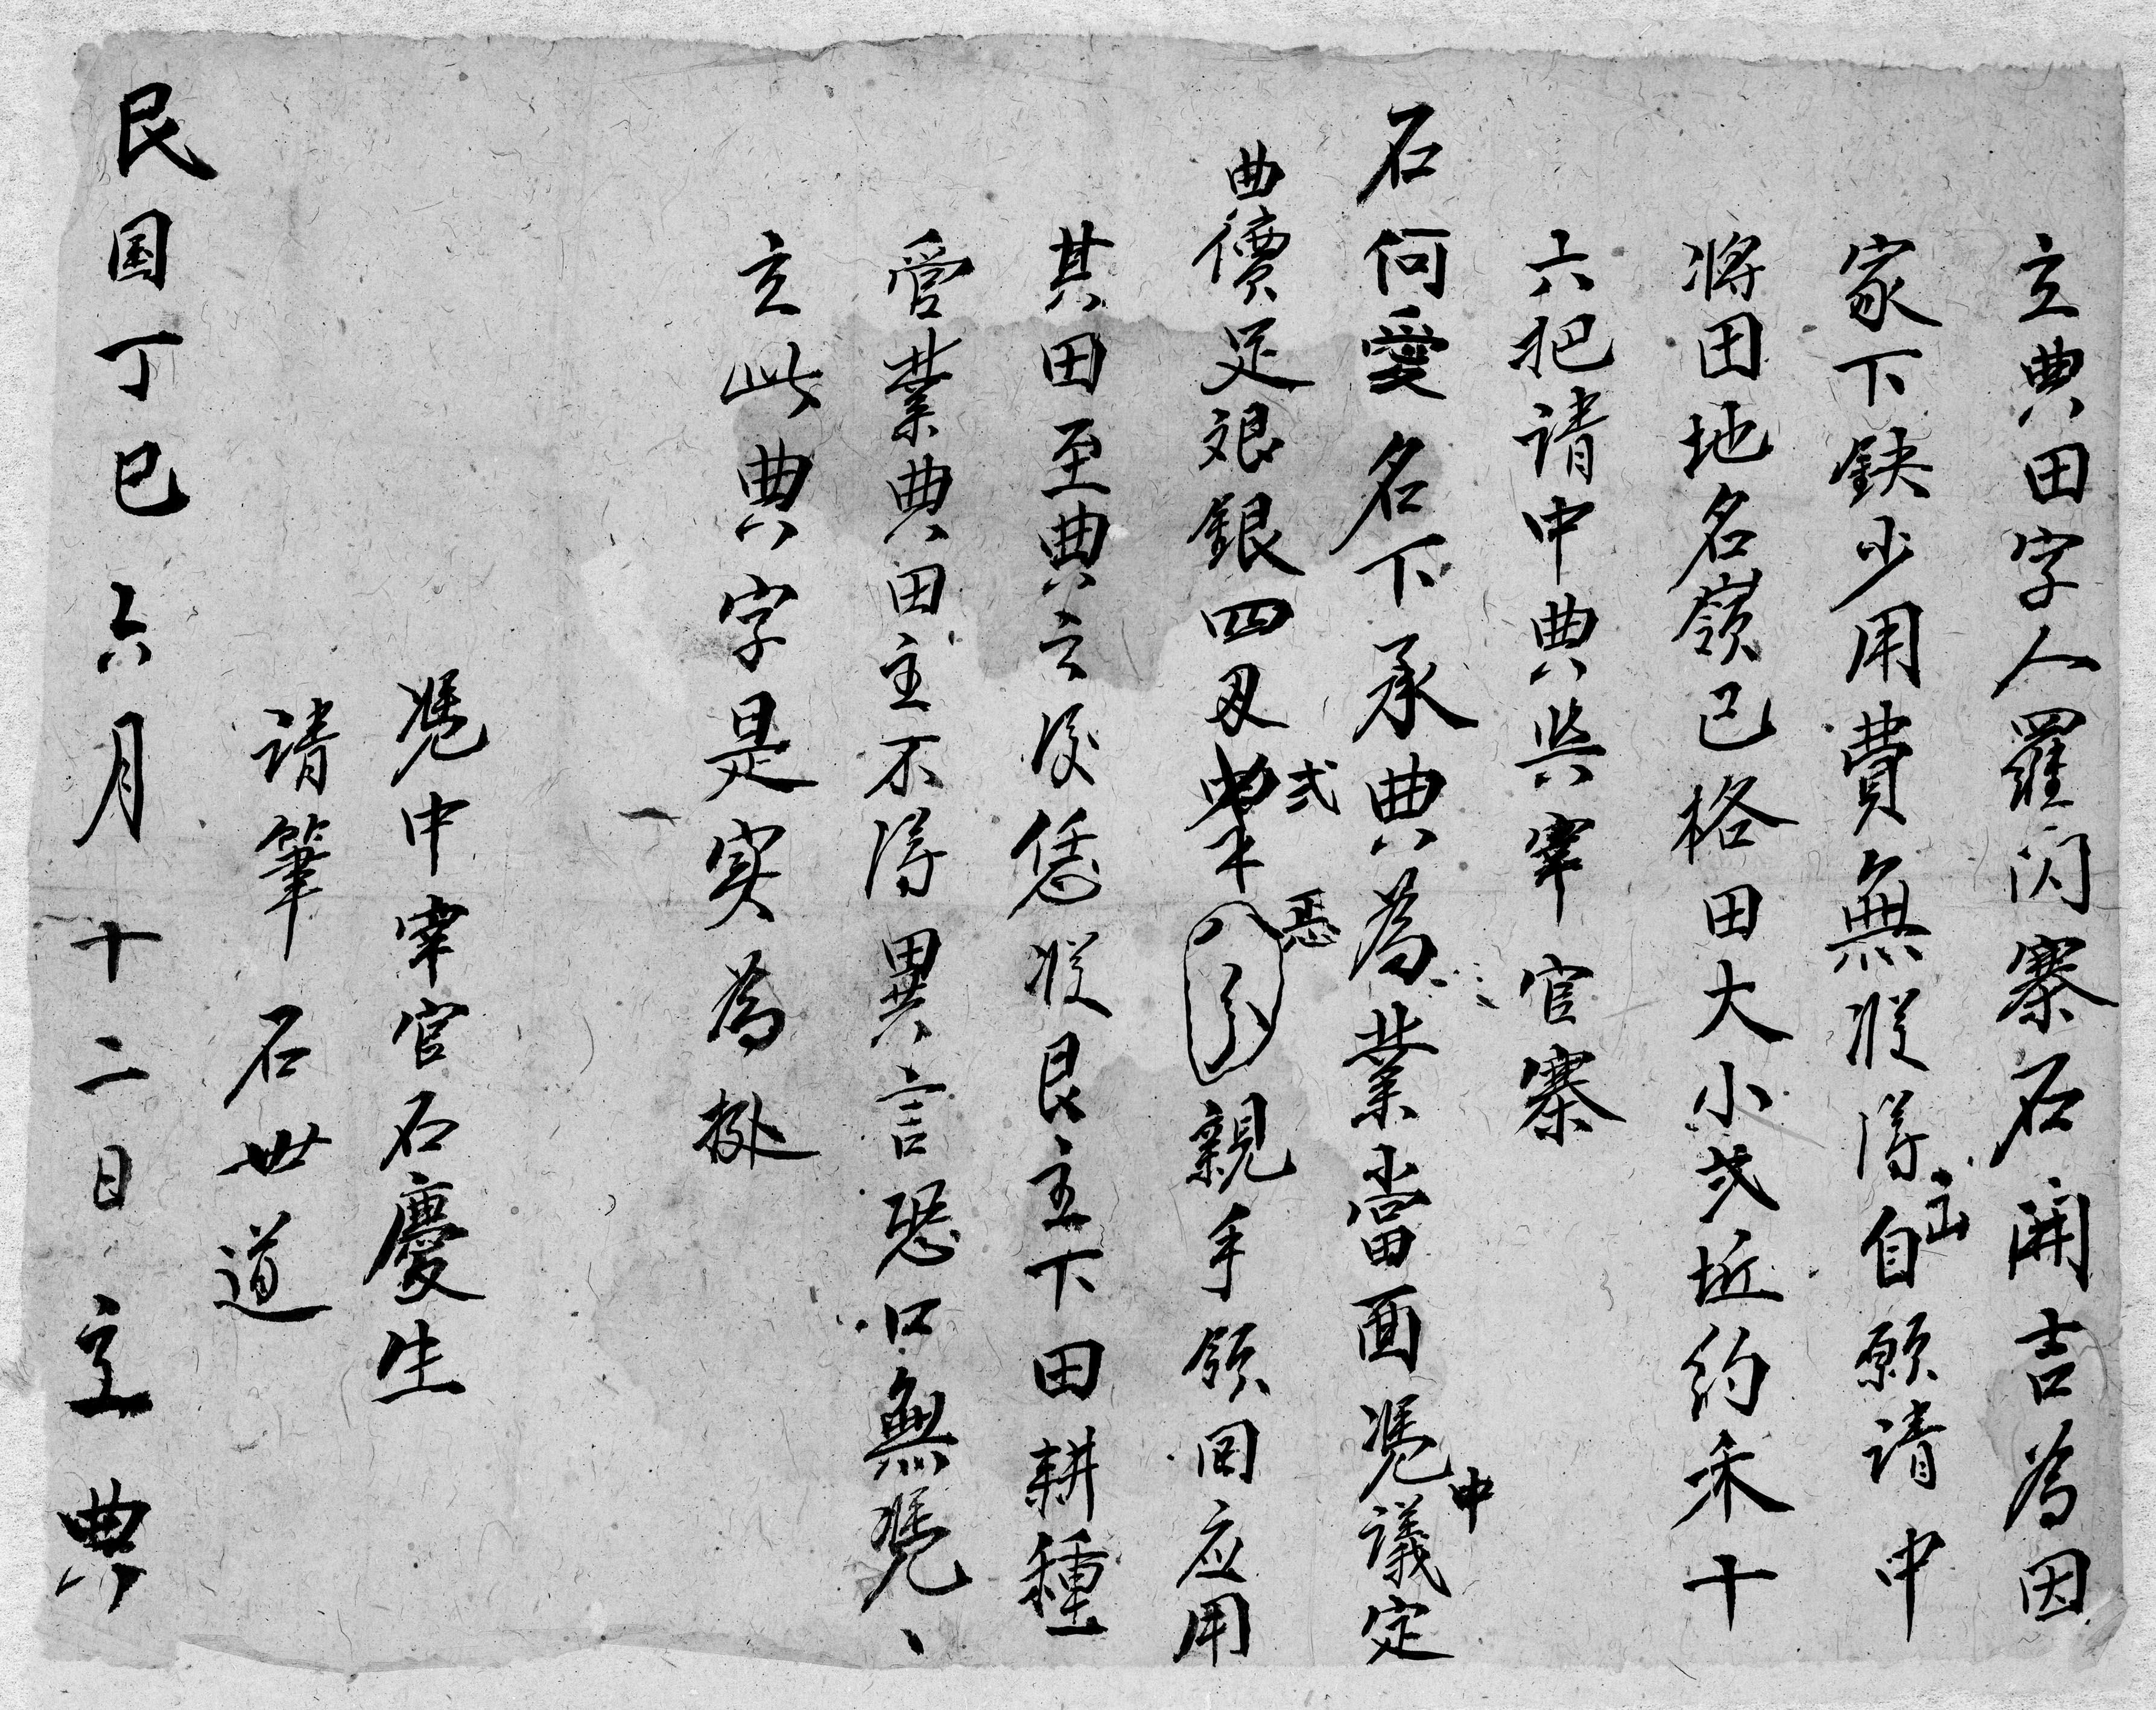 立典田字人羅闪寨石開吉為因
家下缺少用費無從得山自願請中
將田地名嶺已格田大小弐坵約禾十
六把請中典與宰官寨
石何愛名下承典為業當面憑中議定
典價足艮銀四両弐親手領回应用
其田至典之後恁從艮主下田耕種
管業典田主不得異言恐口無憑、
立此典字是实為㨿
憑中宰官石慶生
請筆石世道
民国丁巳六月十二日立典